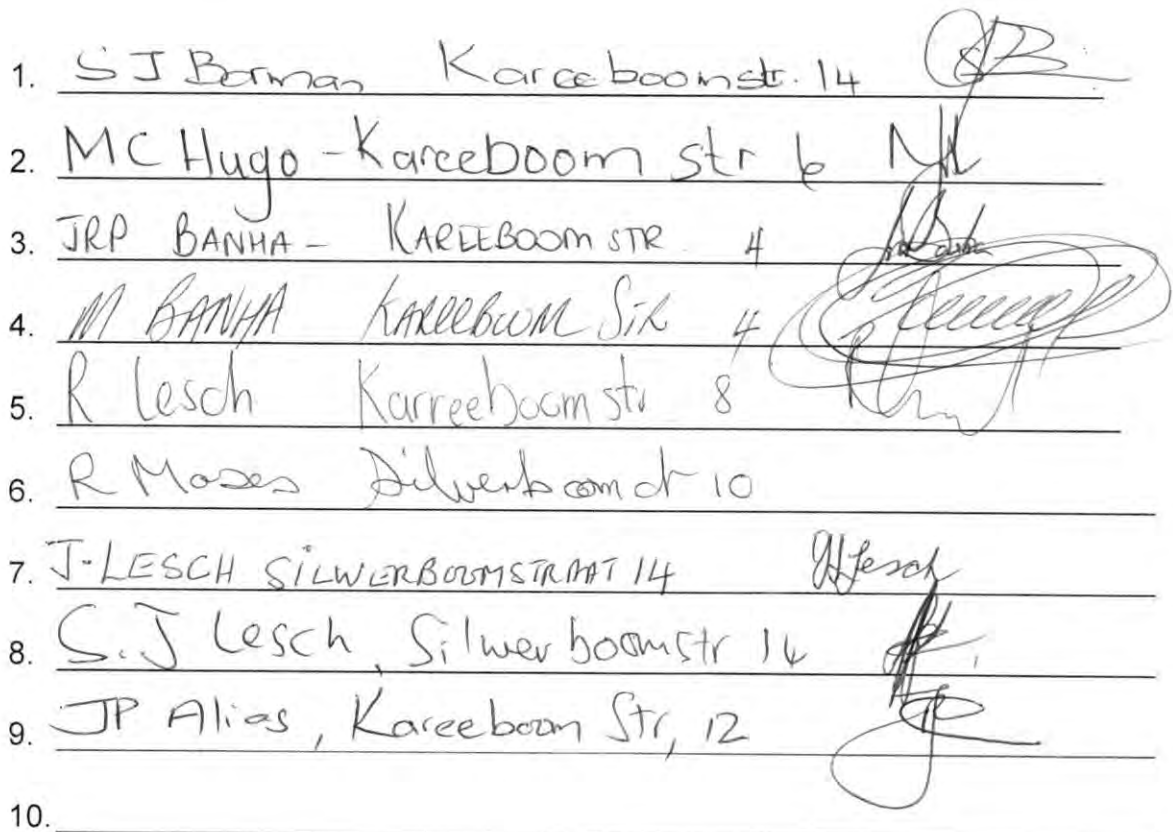 1. S J Borman Kareeboomstr. 14
2. MC Hugo - Kareeboom str 6
3. JRP BANHA - KAREEBOOM STR 4
4. M BANHA KAREEBOOM STR 4
5. R Lesch Karreeboomstr 8
6. R Moses 10
7. J. LESCH SILWERBOOMSTRAAT 14 Lesch
8. S.J Lesch, Silwerboomstr 14
9. JP Alias, Kareeboom Str, 12
10.